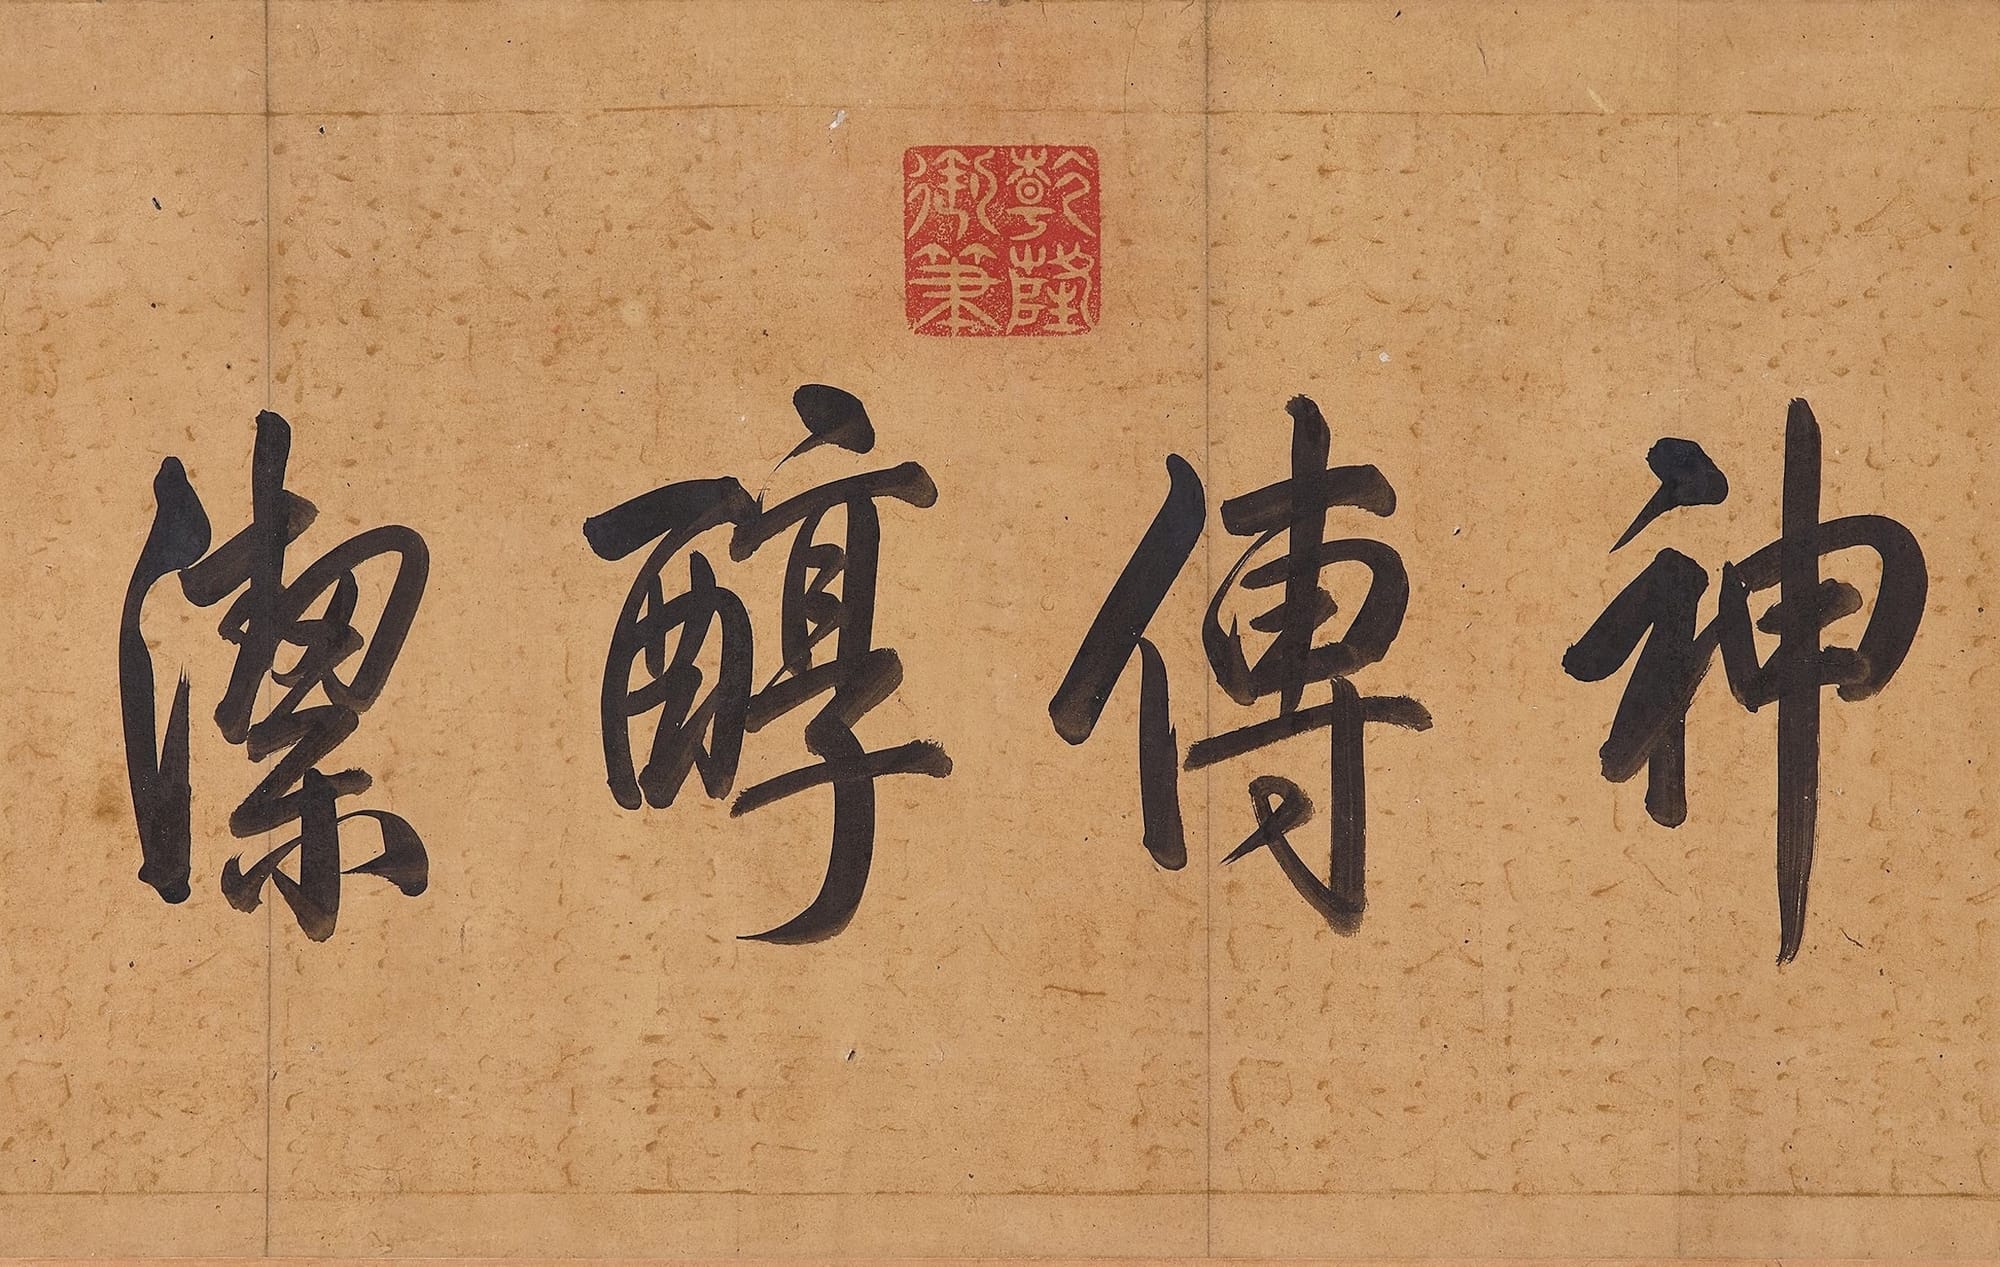 神傳醇潔
乾隆
御筆